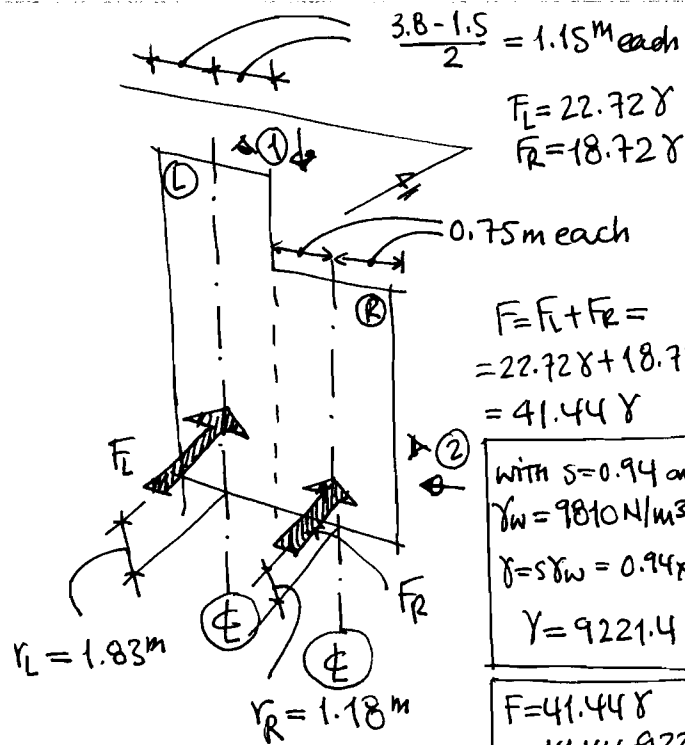 (3.8-1.5)/2 = 1.15 m each
F_L = 22.72 γ
F_R = 18.72 γ
①
L
0.75 m each
R
F = F_L + F_R =
= 22.72 γ + 18.7
= 41.44 γ
②
F_L
with s = 0.94 an
γ_w = 9810 N/m3
γ = sγ_w = 0.94x
γ = 9221.4
F_R
r_L = 1.83 m
℄
℄
r_R = 1.18 m
F = 41.44 γ